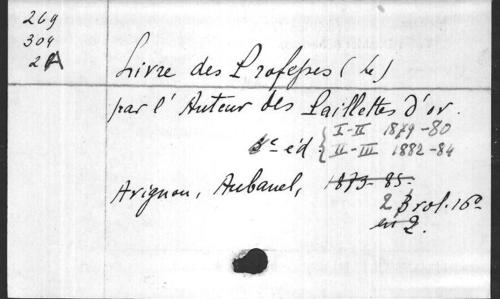 269
304
2A
Livre des Professes (le)
par l'Auteur des Paillettes d'or.
3e éd { I-II 1879-80
II-III 1882-84
Avignon, Aubanel, 1879-85.
2 Brol. 16o
en 2.